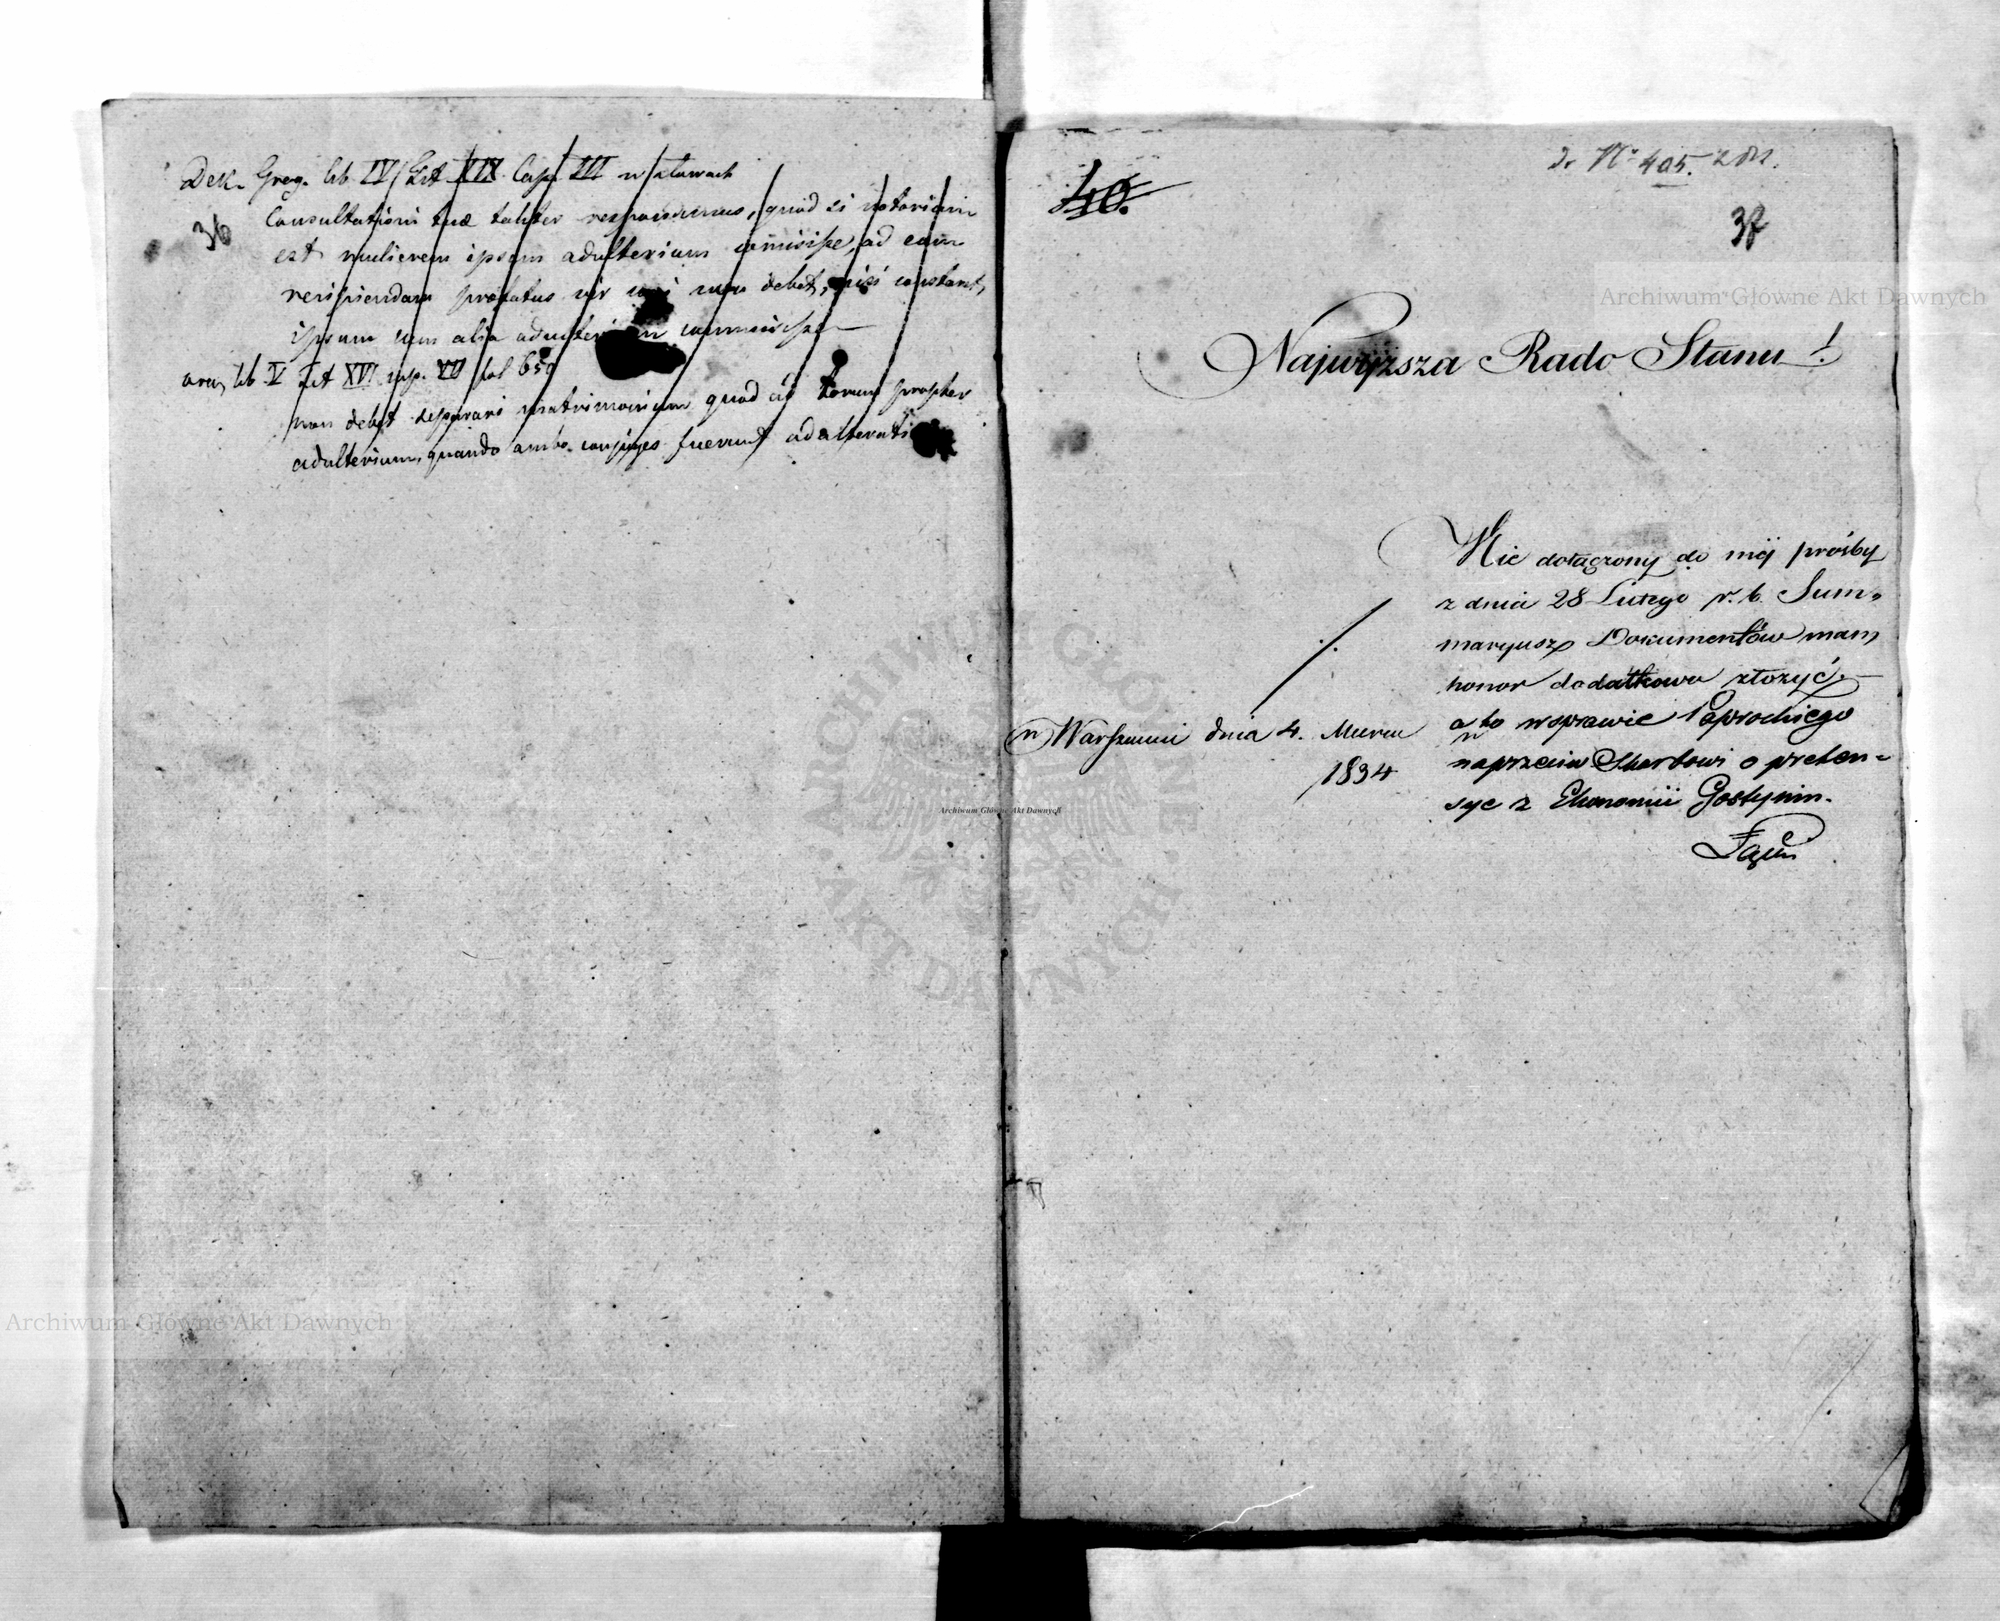 Dek. Greg. lib IV Tit XIX Cap. III w słowach
36
Consultationi tuæ taliter respondemus, quod si notorium
est mulierem ipsam adulterium comisisse, ad eam
recipiendam præfatus vir cogi non debet, nisi constaret,
ipsum cum alia adulterium commisisse
oraz lib V Tit XVI cap. VI fol 650
non debet separari matrimonium quod ad torum propter
adulterium, quando ambo conjuges fuerunt adulterati
40.
do Nr 405.
37
Najwyższa Rado Stanu!
Nie dołączony do mej prośby
z dnia 28 Lutego r. b. Sum-
maryusz Dokumentów mam
honor dodatkowo złożyć.
a to w sprawie Paprockiego
naprzeciw Skarbowi o preten-
syę z Ekonomii Gostynin.
w Warszawie dnia 4. Marca
1834
Archiwum Główne Akt Dawnych
Archiwum Główne Akt Dawnych
Archiwum Główne Akt Dawnych
ARCHIWUM GŁÓWNE
· AKT DAWNYCH ·